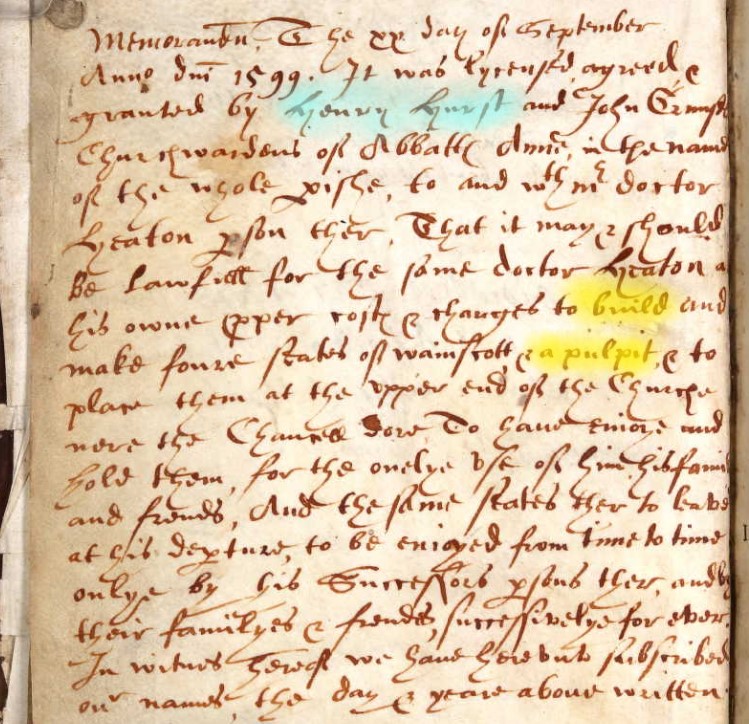 Memorandū, The xx day of September
Anno dni 1599. It was lycensed agreed &
granted by Henry Hurst and John
Churchwardens of Abbatts Anne, in the name
of the whole pishe, to and wth mr doctor
Heaton pson ther, That it may & should
be lawfull for the same doctor Heaton a
his owne pper costs & charges to build and
make foure seates of wainscott & a pulpit, & to
place them at the upper end of the Churche
nere the Chancell dore, To have enioye and
hold them, for the onelye use of him his fami
and frends, And the same seates ther to leave
at his depture, to be enioyed from time to time
onlye by his Successors psons ther, and by
their familyes & frends, successivelye for ever
In witnes hereof we have herevnto subscribed
our names, the day & yeare above written